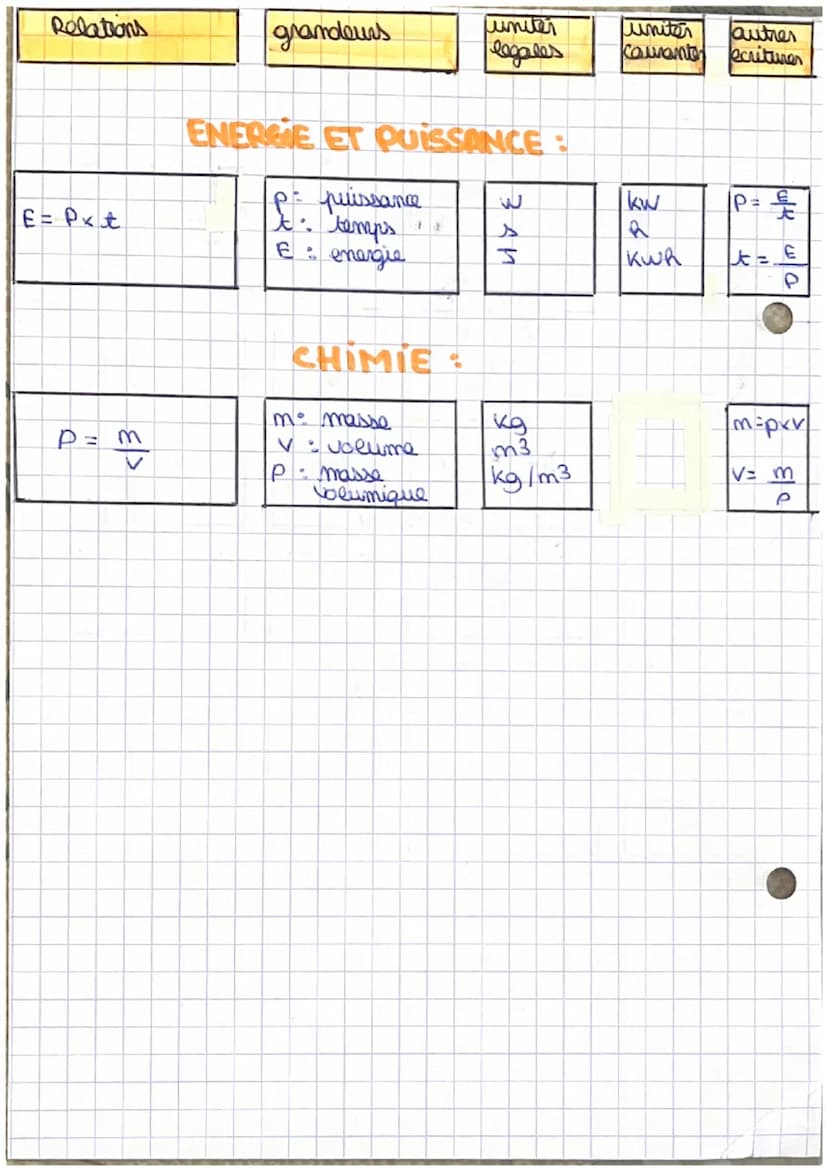 Relations grandeurs unités légales unités courantes autres ecritures
ENERGIE ET PUISSANCE :
E = P x t
P : puissance
t : temps
E : energie
W
s
J
kW
h
kWh
P = E/t
t = E/P
CHIMIE :
ρ = m/V
m : masse
V : volume
ρ : masse volumique
kg
m3
kg/m3
m=ρxV
V = m/ρ